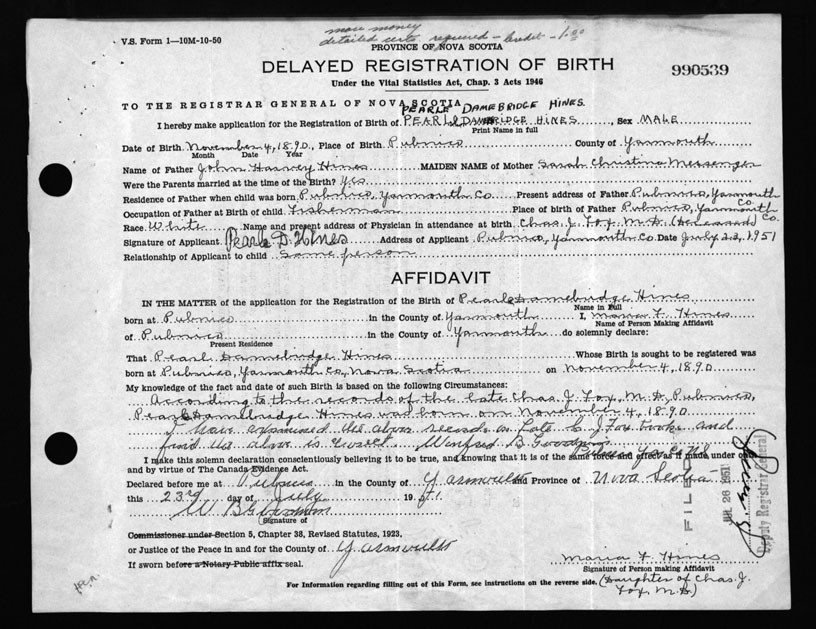 more money
detailed certs. required - Credit - 1.00
V.S. Form 1—10M-10-50
PROVINCE OF NOVA SCOTIA
DELAYED REGISTRATION OF BIRTH
990539
Under the Vital Statistics Act, Chap. 3 Acts 1946
TO THE REGISTRAR GENERAL OF NOVA SCOTIA
PEARLE DAMEBRIDGE HINES.
I hereby make application for the Registration of Birth of PEARLE DAMEBRIDGE HINES, Sex MALE
Print Name in full
Date of Birth November 4, 1890, Place of Birth Pubnico County of Yarmouth
Month Date Year
Name of Father John Harvey Hines MAIDEN NAME of Mother Sarah Christina Messenger
Were the Parents married at the time of the Birth? Yes
Residence of Father when child was born Pubnico, Yarmouth Co Present address of Father Pubnico, Yarmouth Co.
Occupation of Father at Birth of child Fisherman Place of birth of Father Pubnico, Yarmouth Co.
Race White Name and present address of Physician in attendance at birth Chas. J. Fox, M.D. (Deceased)
Signature of Applicant Pearle D. Hines Address of Applicant Pubnico, Yarmouth Co. Date July 23, 1951
Relationship of Applicant to child Same person
AFFIDAVIT
IN THE MATTER of the application for the Registration of the Birth of Pearle Damebridge Hines
Name in Full
born at Pubnico in the County of Yarmouth I, Maria F. Hines
Name of Person Making Affidavit
of Pubnico in the County of Yarmouth do solemnly declare:
Present Residence
That Pearl Damebridge Hines Whose Birth is sought to be registered was
born at Pubnico, Yarmouth Co, Nova Scotia on November 4, 1890
My knowledge of the fact and date of such Birth is based on the following Circumstances:
According to the records of the late Chas. J. Fox, M.D., Pubnico,
Pearl Damebridge Hines was born on November 4, 1890
I have examined the above record in Late C. J. Fox books and
find the above is correct. Winfred B. Goodwin
Pubnico Yar. Co N.S.
I make this solemn declaration conscientiously believing it to be true, and knowing that it is of the same force and effect as if made under oath
and by virtue of The Canada Evidence Act.
Declared before me at Pubnico in the County of Yarmouth and Province of Nova Scotia
this 23rd day of July 1951
W B Goodwin
Signature of
Commissioner under Section 5, Chapter 38, Revised Statutes, 1923,
or Justice of the Peace in and for the County of Yarmouth
If sworn before a Notary Public affix seal.
Maria F. Hines
Signature of Person making Affidavit
For Information regarding filling out of this Form, see instructions on the reverse side.
(Daughter of Chas. J.
Fox, M.D.)
FILED
JUL 26 1951
Deputy Registrar General